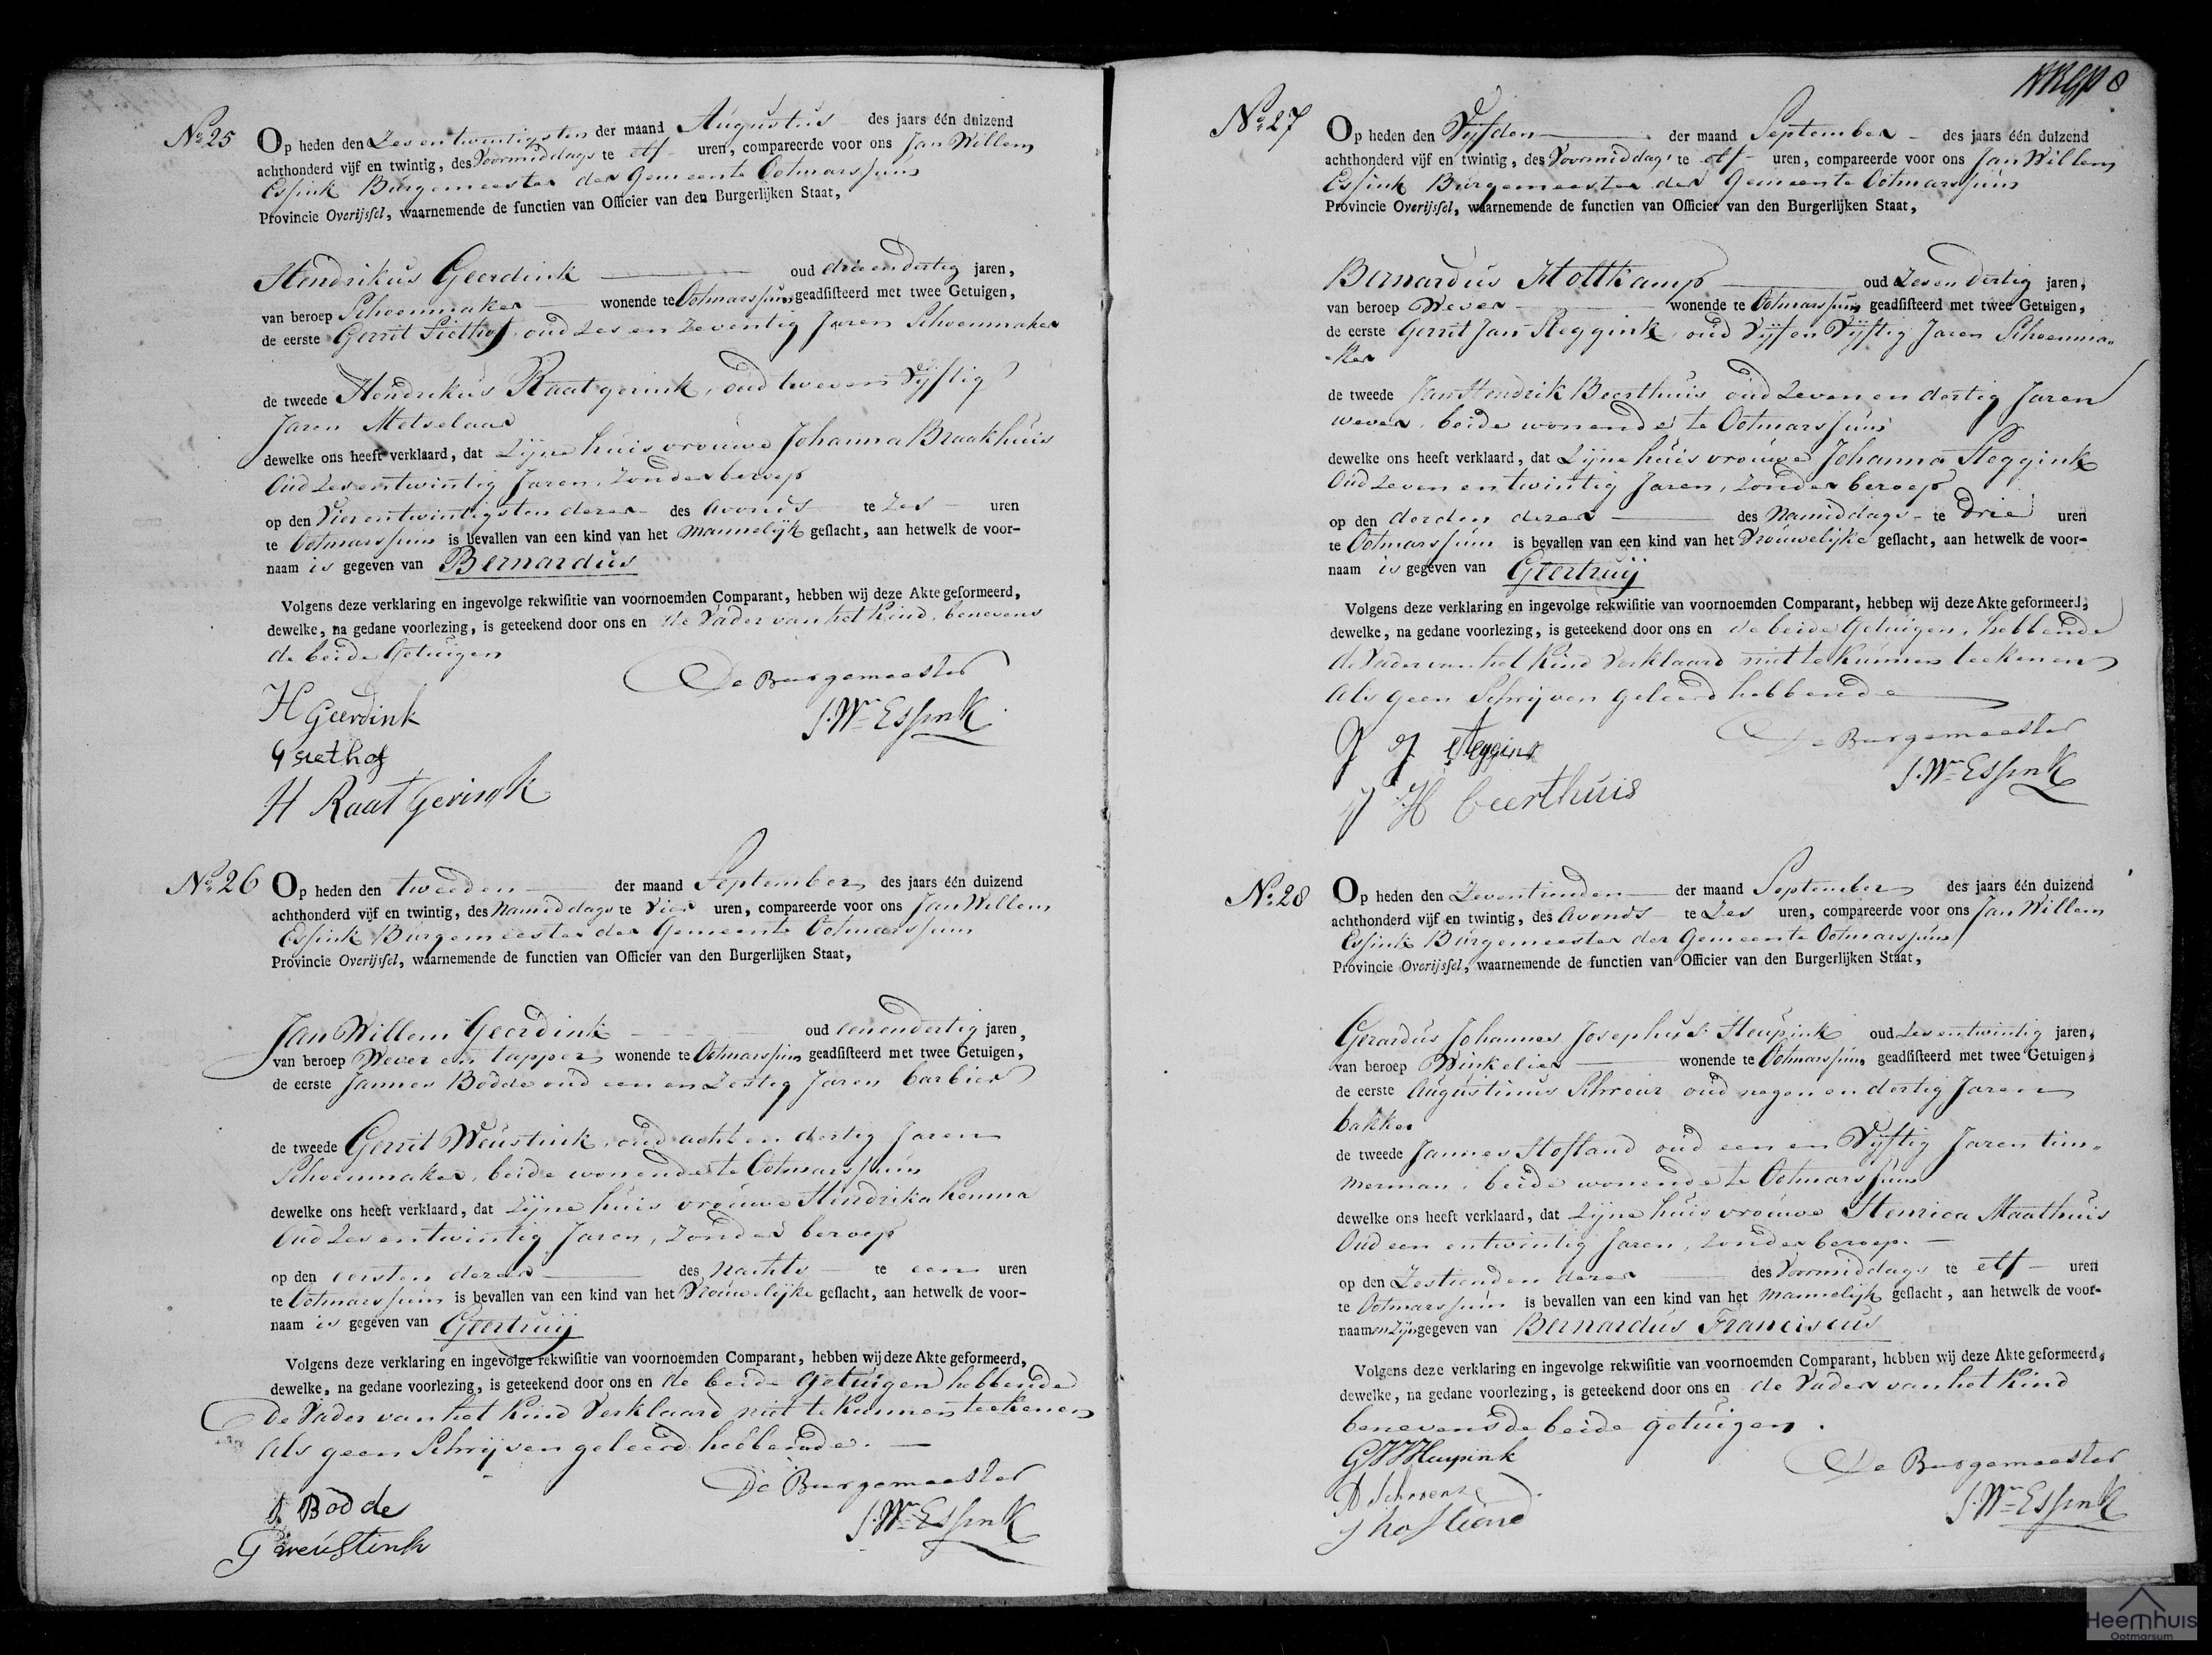 No 25 Op heden den Zes en twintigsten der maand Augustus des jaars één duizend
achthonderd vijf en twintig, des Voormiddags te elf uren, compareerde voor ons Jan Willem
Essink Burgemeester der Gemeente Ootmarssum
Provincie Overijssel, waarnemende de functien van Officier van den Burgerlijken Staat,
Hendrikus Geerdink oud drie en dertig jaren,
van beroep Schoenmaker wonende te Ootmarssum geadsisteerd met twee Getuigen,
de eerste Gerrit Siethof, oud Zes en Zeventig Jaren Schoenmaker
de tweede Hendrikus Raatgerink, oud twee en Vijftig
Jaren Metselaar
dewelke ons heeft verklaard, dat Zijne huisvrouwe Johanna Braakhuis
Oud Zes en twintig Jaren, Zonder beroep
op den Vier en twintigsten dezer des Avonds te Zes uren
te Ootmarssum is bevallen van een kind van het Mannelijk geslacht, aan hetwelk de voor-
naam is gegeven van Bernardus
Volgens deze verklaring en ingevolge rekwisitie van voornoemden Comparant, hebben wij deze Akte geformeerd,
dewelke, na gedane voorlezing, is geteekend door ons en de Vader van het Kind, benevens
de beide Getuigen
De Burgemeester
H Geerdink
J. Wm Essink
G Siethof
H Raatgerink
No 26 Op heden den tweeden der maand September des jaars één duizend
achthonderd vijf en twintig, des Namiddags te Vier uren, compareerde voor ons Jan Willem
Essink Burgemeester der Gemeente Ootmarssum
Provincie Overijssel, waarnemende de functien van Officier van den Burgerlijken Staat,
Jan Willem Geerdink oud een en dertig jaren,
van beroep Wever en tapper wonende te Ootmarssum geadsisteerd met twee Getuigen,
de eerste Jannes Bodde oud een en Zestig Jaren barbier
de tweede Gerrit Weustink, oud acht en dertig Jaren
Schoenmaker, beide wonende te Ootmarssum
dewelke ons heeft verklaard, dat Zijne huisvrouwe Hendrika Kemna
Oud Zes en twintig Jaren, Zonder beroep
op den eersten dezer des Nachts te een uren
te Ootmarssum is bevallen van een kind van het Vrouwelijke geslacht, aan hetwelk de voor-
naam is gegeven van Geertruij
Volgens deze verklaring en ingevolge rekwisitie van voornoemden Comparant, hebben wij deze Akte geformeerd,
dewelke, na gedane voorlezing, is geteekend door ons en de beide getuigen hebbende
De Vader van het Kind Verklaard niet te kunnen teekenen
als geen Schrijven geleerd hebbende.
De Burgemeester
J Bodde
J. Wm Essink
G weustink
No 27 Op heden den Vijfden der maand September des jaars één duizend
achthonderd vijf en twintig, des Voormiddags te elf uren, compareerde voor ons Jan Willem
Essink Burgemeester der Gemeente Ootmarssum
Provincie Overijssel, waarnemende de functien van Officier van den Burgerlijken Staat,
Bernardus Holtkamp oud Zes en dertig jaren,
van beroep Wever wonende te Ootmarssum geadsisteerd met twee Getuigen,
de eerste Gerrit Jan Steggink, oud Vijf en Vijftig Jaren Schoenma-
-ker
de tweede Jan Hendrik Beerthuis oud Zeven en dertig Jaren
wever, beide wonende te Ootmarssum
dewelke ons heeft verklaard, dat Zijne huisvrouwe Johanna Steggink
Oud Zeven en twintig Jaren, Zonder beroep
op den derden dezer des Namiddags te Drie uren
te Ootmarssum is bevallen van een kind van het Vrouwelijke geslacht, aan hetwelk de voor-
naam is gegeven van Geertruij
Volgens deze verklaring en ingevolge rekwisitie van voornoemden Comparant, hebben wij deze Akte geformeerd,
dewelke, na gedane voorlezing, is geteekend door ons en de beide Getuigen, hebbende
de Vader van het Kind Verklaard niet te kunnen teekenen
als geen Schrijven geleerd hebbende
De Burgemeester
G J Steggink
J. Wm Essink
J H beerthuis
No 28 Op heden den Zeventienden der maand September des jaars één duizend
achthonderd vijf en twintig, des Avonds te Zes uren, compareerde voor ons Jan Willem
Essink Burgemeester der Gemeente Ootmarssum
Provincie Overijssel, waarnemende de functien van Officier van den Burgerlijken Staat,
Gerardus Johannes Josephus Heupink oud Zes en twintig jaren,
van beroep Winkelier wonende te Ootmarssum geadsisteerd met twee Getuigen,
de eerste Augustinus Schreur oud negen en dertig Jaren
bakker
de tweede Jannes Hofland oud een en Vijftig Jaren tim-
merman, beide wonende te Ootmarssum
dewelke ons heeft verklaard, dat Zijne huisvrouwe Henrica Maathuis
Oud een en twintig Jaren, Zonder beroep.
op den Zestienden dezer des Voormiddags te elf uren
te Ootmarssum is bevallen van een kind van het Mannelijk geslacht, aan hetwelk de voor-
naamen Zijn gegeven van Bernardus Franciscus
Volgens deze verklaring en ingevolge rekwisitie van voornoemden Comparant, hebben wij deze Akte geformeerd,
dewelke, na gedane voorlezing, is geteekend door ons en de Vader van het Kind
benevens de beide getuigen.
GJJHeupink
De Burgemeester
J. Wm Essink
J hofland
Heemhuis
Ootmarsum